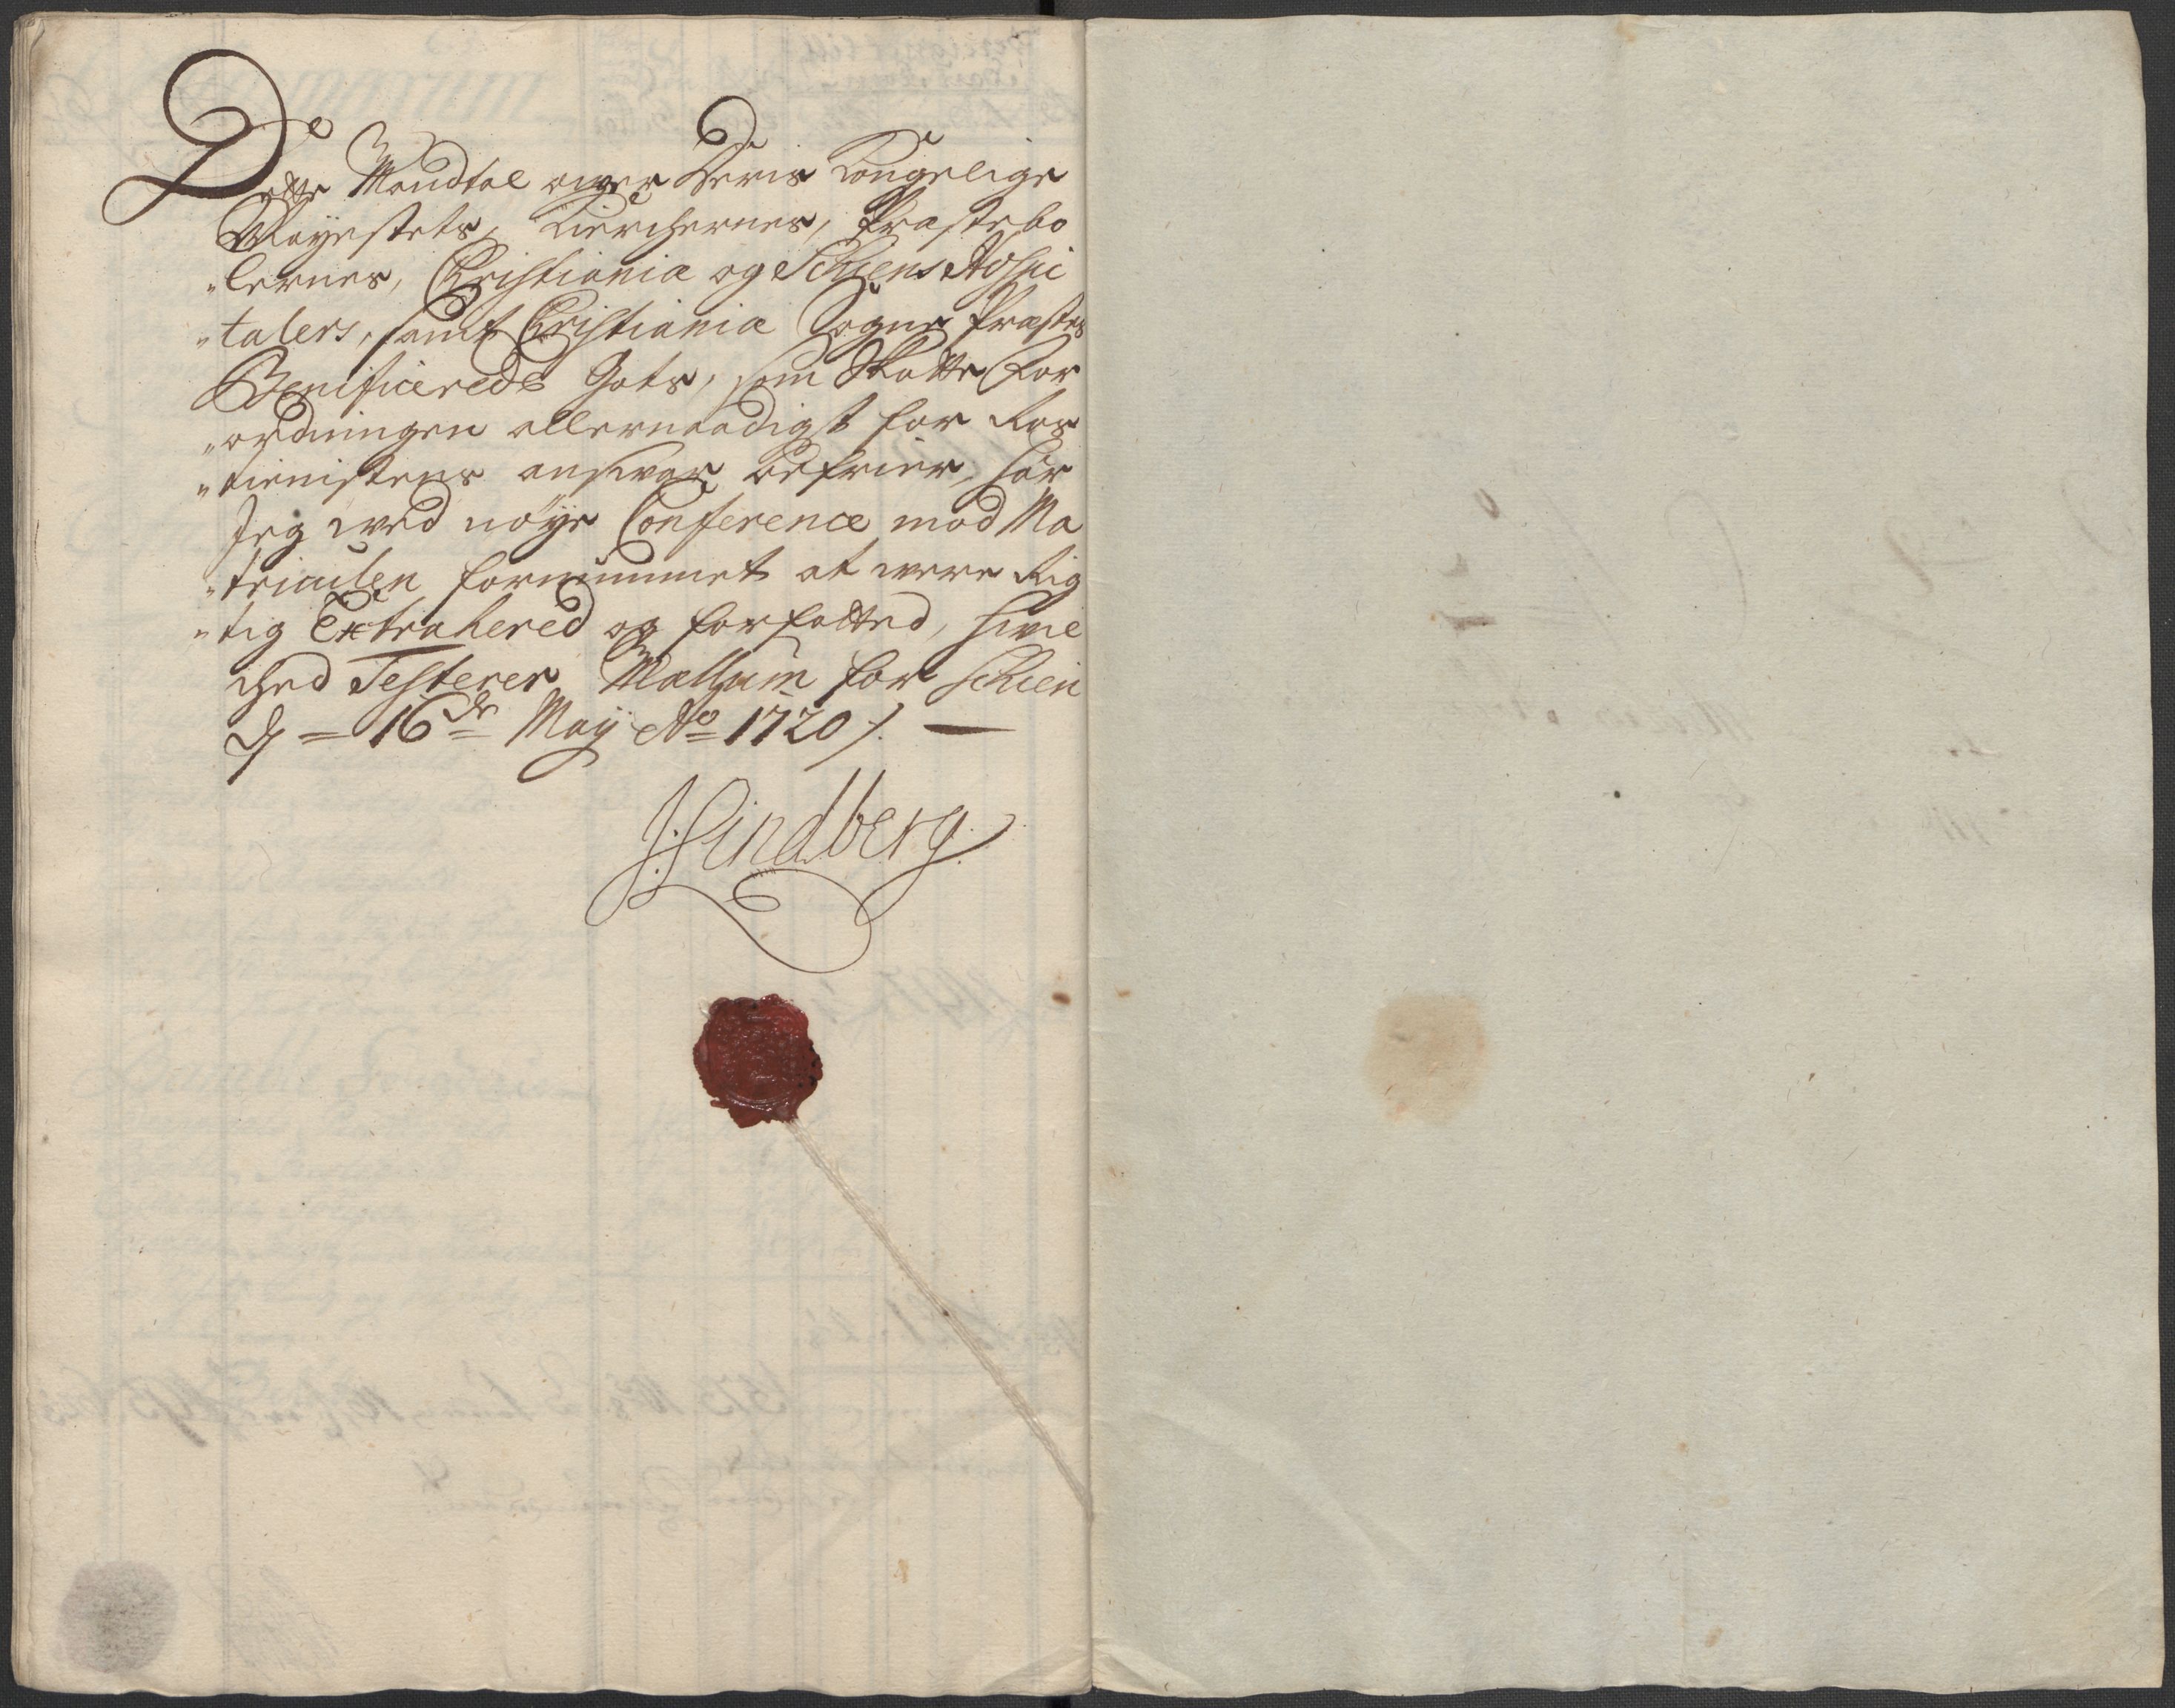 Dette Mandtal over Deris Kongelige
Mayestets, Kierchernes, Præstebo
„lernes, Christiania og Schiens Hospi
„talers, samt Christiania Sogne Præstes
Benificerede Gots, som Skatte For
„ordningen allernaadigst for Ros
„tienistens ansvar befrier, har
Jeg ved nøye Conference mod Ma
„triculen fornummet at were Rig
„tig Extrahered og forfatted, hvil
ched Testerer Mælhum for Schien
d = 16de May Ao 1720 /. —
J: Lindberg.